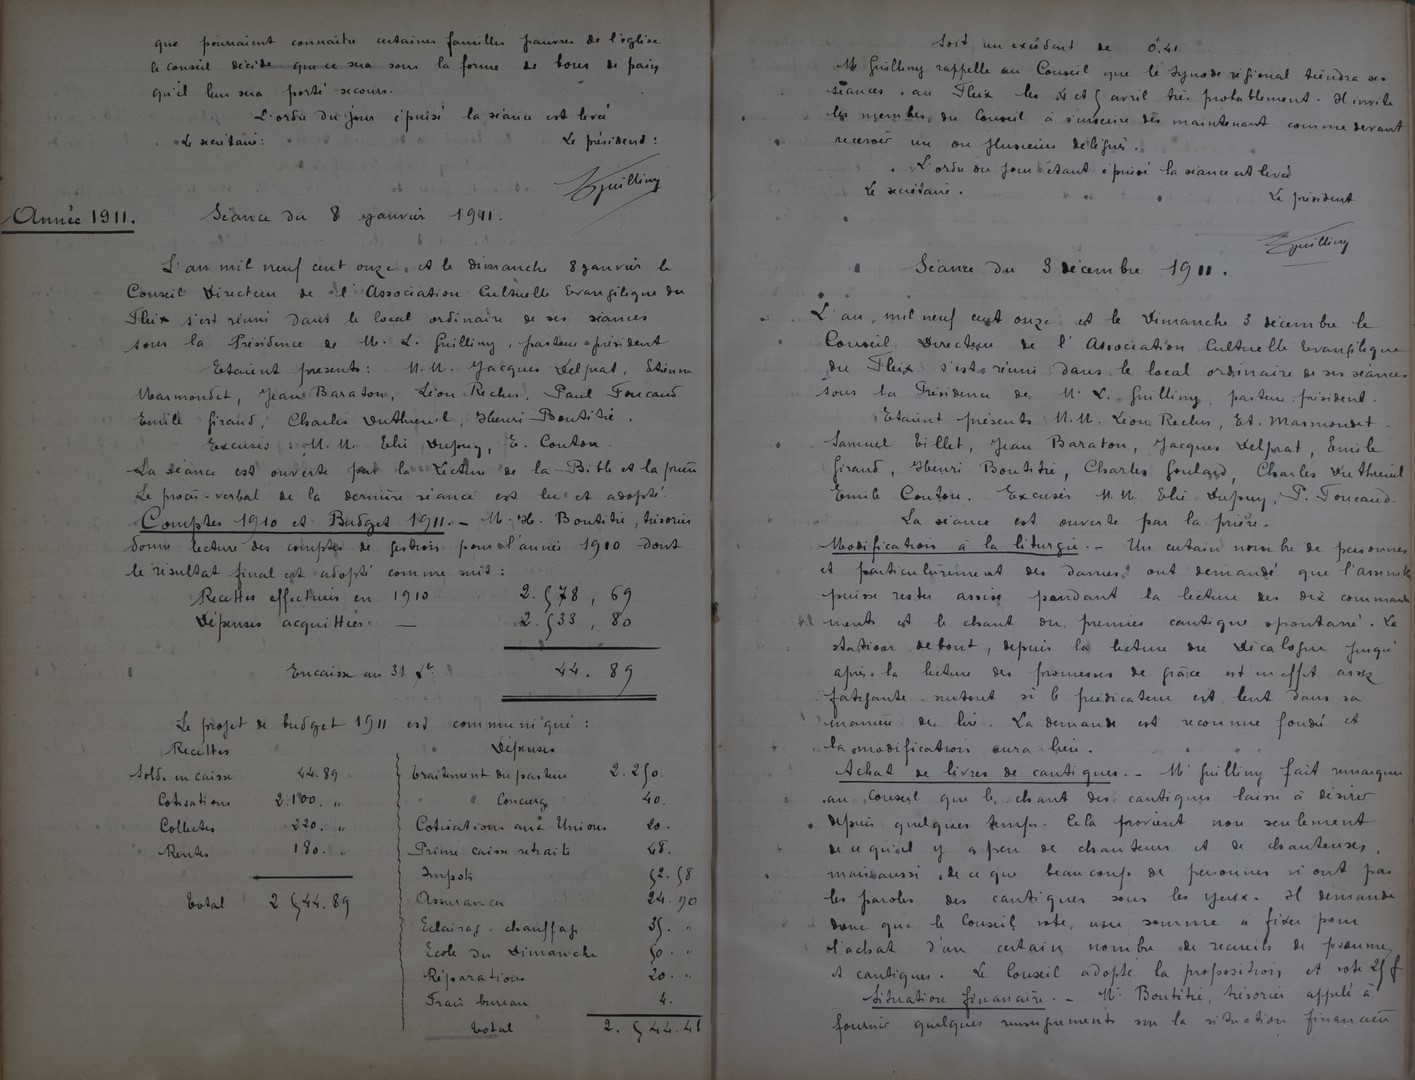 que pourraient connaître certaines familles pauvres de l'église
le conseil décide que ce sera sous la forme de bons de pain
qu'il leur sera porté secours.
L'ordre du jour épuisé la séance est levée
Le secrétaire:
Le président:
L Guilliny
Année 1911.
Séance du 8 janvier 1911.
L'an mil neuf cent onze et le dimanche 8 janvier le
Conseil Directeur de l'Association Cultuelle Evangélique du
Fleix s'est réuni dans le local ordinaire de ses séances
sous la Présidence de M. L. Guilliny, pasteur président
Etaient présents: M.M. Jacques Delprat, Etienne
Marmondet, Jean Baraton, Léon Reclus, Paul Foucaud
Emile Giraud, Charles Dutheuil, Henri Boutitié.
Excusés: M.M. Elie Dupuy, E. Couton.
La séance est ouverte par la Lecture de la Bible et la prière
Le procès-verbal de la dernière séance est lu et adopté
Comptes 1910 et Budget 1911. - M. H. Boutitié, trésorier
donne lecture des comptes de gestion pour l'année 1910 dont
le résultat final est adopté comme suit:
Recettes effectuées en 1910 2.578,69
Dépenses acquittées — 2.533,80
Encaisse au 31 Xbre 44.89
Le projet de budget 1911 est communiqué:
Recettes
Solde en caisse 44.89
Cotisations 2.100. "
Collectes 220. "
Rentes 180. "
Total 2 544.89
Dépenses
Traitement du pasteur 2.250.
" Concierge 40.
Cotisations aux Unions 20.
Prime caisse retraite 48.
Impots 52.58
Assurances 24.90
Eclairage, chauffage 35. "
Ecole du Dimanche 50. "
Réparations 20. "
Frais bureau 4.
Total 2.544.48
Soit un excédant de 0.41
M. Guilliny rappelle au Conseil que le synode régional tiendra ses
séances au Fleix les 4 et 5 avril très probablement. Il invite
les membres du Conseil à s'inscrire dès maintenant comme devant
recevoir un ou plusieurs délégués.
L'ordre du jour étant épuisé la séance est levée
Le secrétaire.
Le président
L Guilliny
Séance du 3 décembre 1911.
L'an mil neuf cent onze et le Dimanche 3 décembre le
Conseil Directeur de l'Association Cultuelle Evangélique
du Fleix s'est réuni dans le local ordinaire de ses séances
sous la Présidence de Mr L. Guilliny, pasteur président.
Etaient présents M.M. Léon Reclus, Et. Marmondet
Samuel Billet, Jean Baraton, Jacques Delprat, Emile
Giraud, Henri Boutitié, Charles Goulard, Charles Dutheuil
Emile Couton. Excusés M.M. Elie Dupuy, P. Foucaud.
La séance est ouverte par la prière.
Modification à la liturgie. - Un certain nombre de personnes
et particulièrement des dames ont demandé que l'assemblée
puisse rester assise pendant la lecture des dix commande
ments et le chant du premier cantique spontané. La
station debout, depuis la lecture du Décalogue jusqu'
après la lecture des promesses de grâce est en effet assez
fatigante surtout si le prédicateur est lent dans sa
manière de lire. La demande est reconnue fondée et
la modification aura lieu.
Achat de livres de cantiques. - Mr Guilliny fait remarquer
au Conseil que le chant des cantiques laisse à désirer
depuis quelques temps. Cela provient non seulement
de ce qu'il y a peu de chanteurs et de chanteuses,
mais aussi de ce que beaucoup de personnes n'ont pas
les paroles des cantiques sous les yeux. Il demande
donc que le Conseil vote une somme à fixer pour
l'achat d'un certain nombre de recueils de psaumes
et cantiques. Le Conseil adopte la proposition et vote 25 f
Situation financière. - Mr Boutitié, trésorier appelé à
fournir quelques renseignements sur la situation financière